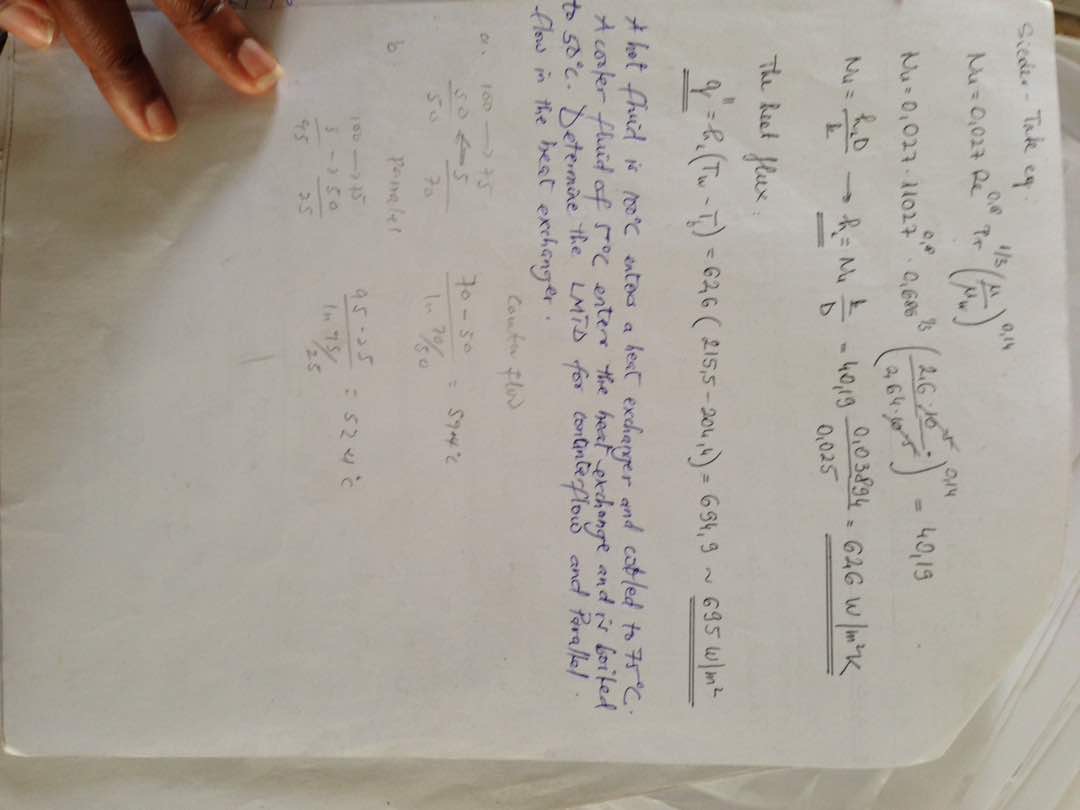 Sieder-Tate eq.
Nu = 0,027 Re^0,8 Pr^1/3 (μ/μw)^0,14
Nu = 0,027 · 11027^0,8 · 0,686^1/3 (2,6·10^-5 / 2,64·10^-5)^0,14 = 40,19
Nu = hiD/k → hi = Nu k/D = 40,19 0,03894/0,025 = 62,6 W/m²K
The heat flux:
q" = hi(Tw - Tb) = 62,6 (215,5 - 204,4) = 694,9 ~ 695 W/m²
A hot fluid is 100°C enters a heat exchanger and cooled to 75°C.
A cooler fluid of 5°C enters the heat exchange and is boiled
to 50°C. Determine the LMTD for counterflow and Parallel
flow in the heat exchanger.
counter flow
a. 100 → 75
50 ← 5
50 70
70-50 / ln 70/50 = 59.4°C
b. parralel
100 → 75
5 → 50
95 25
95-25 / ln 95/25 = 52.4°C